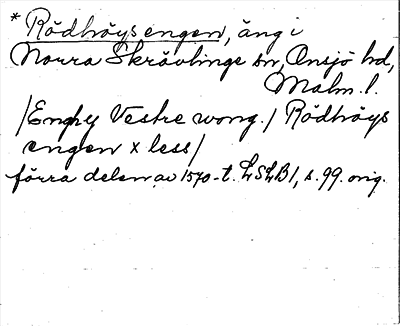 * Rödhöysengen, äng i
Norra Skrävlinge sn, Onsjö hd,
Malm. l.
/Enghy Vestre wong./ Rödhöys
engen x less/
förra delen av 1570-t. LSLB 1, s. 99. orig.